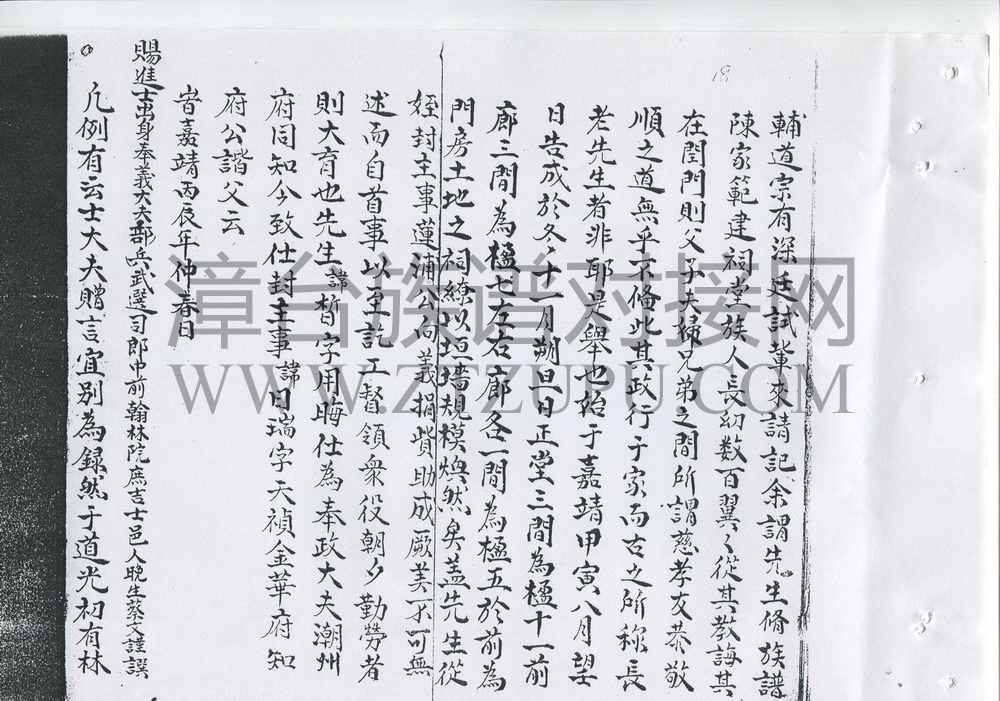 18
輔道宗有深廷試輩來請記余謂先生脩族譜
陳家範建祠堂族人長幼数百翼々從其教誨其
在閨門則父子夫婦兄弟之間所謂慈孝友恭敬
順之道無乎不備此其政行于家而古之所称長
老先生者非耶是舉也始于嘉靖甲寅八月望
日告成於冬十一月朔旦日正堂三間為楹十一前
廊三間為楹七左右廊各一間為楹五於前為
門房土地之祠繚以垣墻規模焕然矣盖先生從
姪封主事蓮浦公向義捐貲助成厥美不可無
述而自首事以至訖工督領衆役朝夕勤勞者
則大育也先生諱晳字用晦仕為奉政大夫潮州
府同知今致仕封主事諱日瑞字天禎金華府知
府公諧父云
旹嘉靖丙辰年仲春日
賜進士出身奉義大夫部兵武選司郎中前翰林院庶吉士邑人晚生蔡文謹譔
凡例有云士大夫贈言宜别為録然于道光初有林
漳台族谱对接网
WWW.ZTZUPU.COM